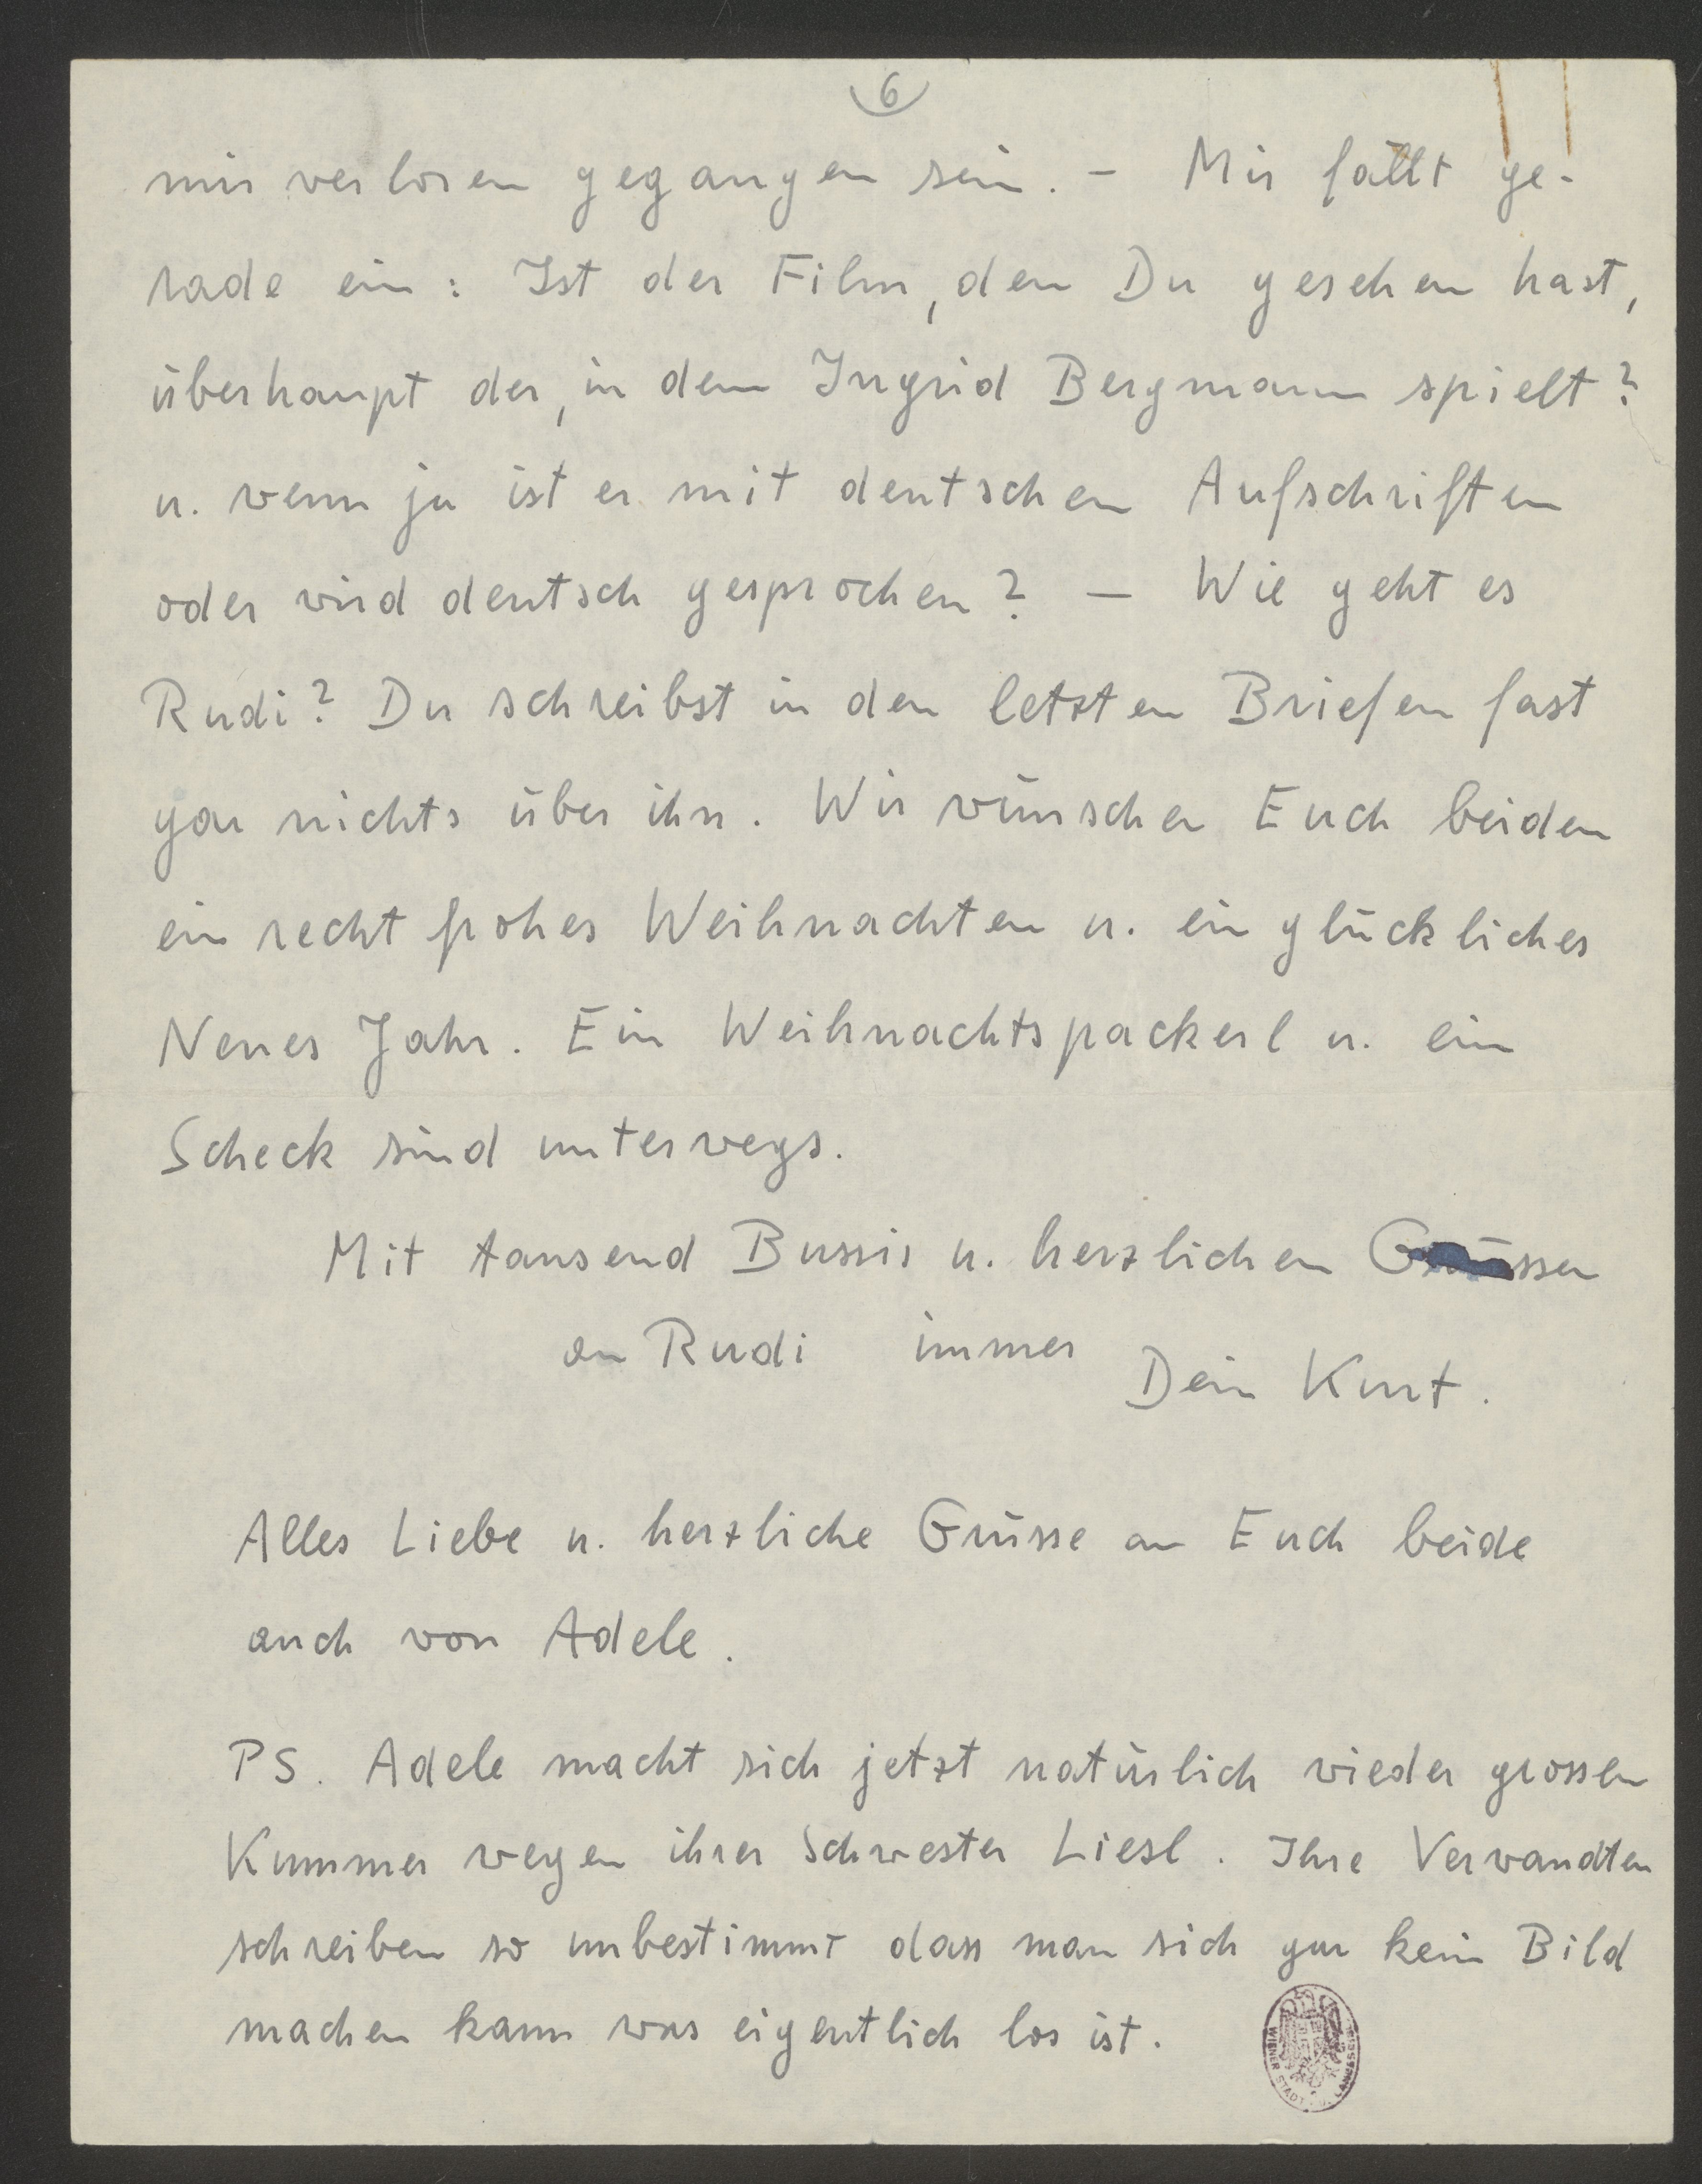 6
mir verloren gegangen sein. - Mir fällt ge-
rade ein: Ist der Film, den Du gesehen hast,
überhaupt der, in dem Ingrid Bergmann spielt?
u. wenn ja ist er mit deutschen Aufschriften
oder wird deutsch gesprochen? — Wie geht es
Rudi? Du schreibst in den letzten Briefen fast
gar nichts über ihn. Wir wünschen Euch beiden
ein recht frohes Weihnachten u. ein glückliches
Neues Jahr. Ein Weihnachtspackerl u. ein
Scheck sind unterwegs.
Mit tausend Bussis u. herzlichen Grüssen
an Rudi immer
Dein Kurt.
Alles Liebe u. herzliche Grüsse an Euch beide
auch von Adele.
PS. Adele macht sich jetzt natürlich wieder grossen
Kummer wegen ihrer Schwester Liesl. Ihre Verwandten
schreiben so unbestimmt dass man sich gar kein Bild
machen kann was eigentlich los ist.
WIENER STADT